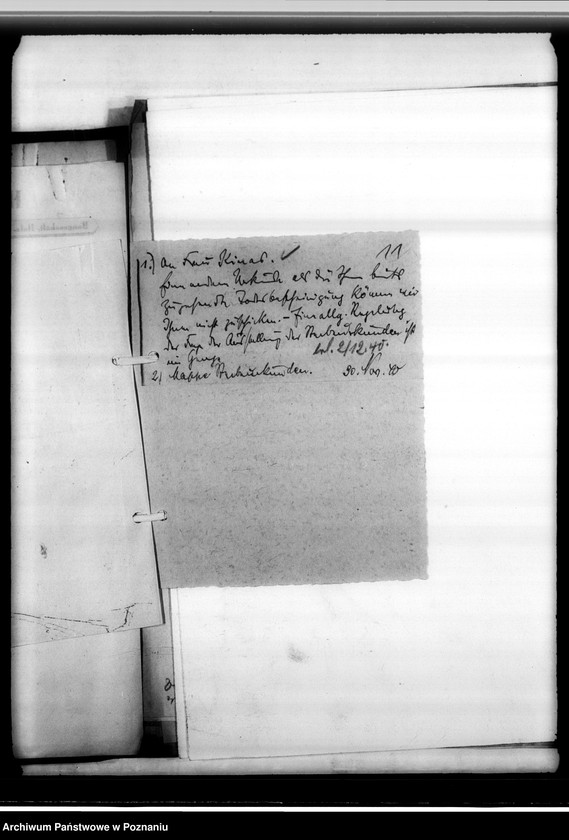 11
1.) An Frau Kinas. ✓
Eine andere Urkunde als die Ihnen bereits
zugesandte Todesbescheinigung können wir
Ihnen nicht zuschicken. - Eine allg. Regelung
der Frage der Ausstellung der Sterbeurkunden ist
im Gange
2/12.40.
2) Mappe Sterbeurkunden. 30. Nov. 40
Archiwum Państwowe w Poznaniu